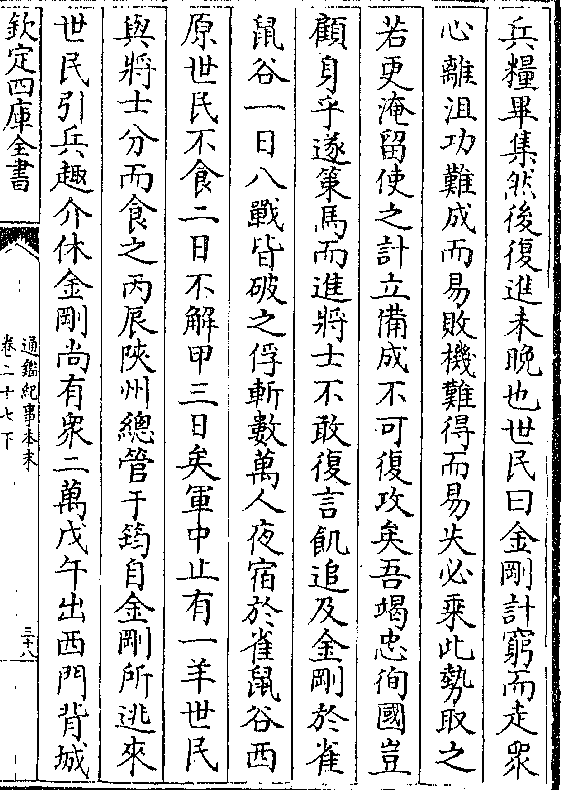 兵糧畢集然後復進未晚也世民曰金剛計窮而走衆
心離沮功難成而易敗機難得而易失必乘此勢取之
若更淹留使之計立備成不可復攻矣吾竭忠徇國豈
顧身乎遂策馬而進將士不敢復言飢追及金剛於雀
鼠谷一日八戰皆破之俘斬數萬人夜宿於雀鼠谷西
原世民不食二日不解甲三日矣軍中止有一羊世民
與將士分而食之丙辰陜州總管于筠自金剛所逃來
世民引兵趣介休金剛尚有衆二萬戊午出西門背城
欽定四庫全書
通鑑紀事本末
卷二十七下
三十八